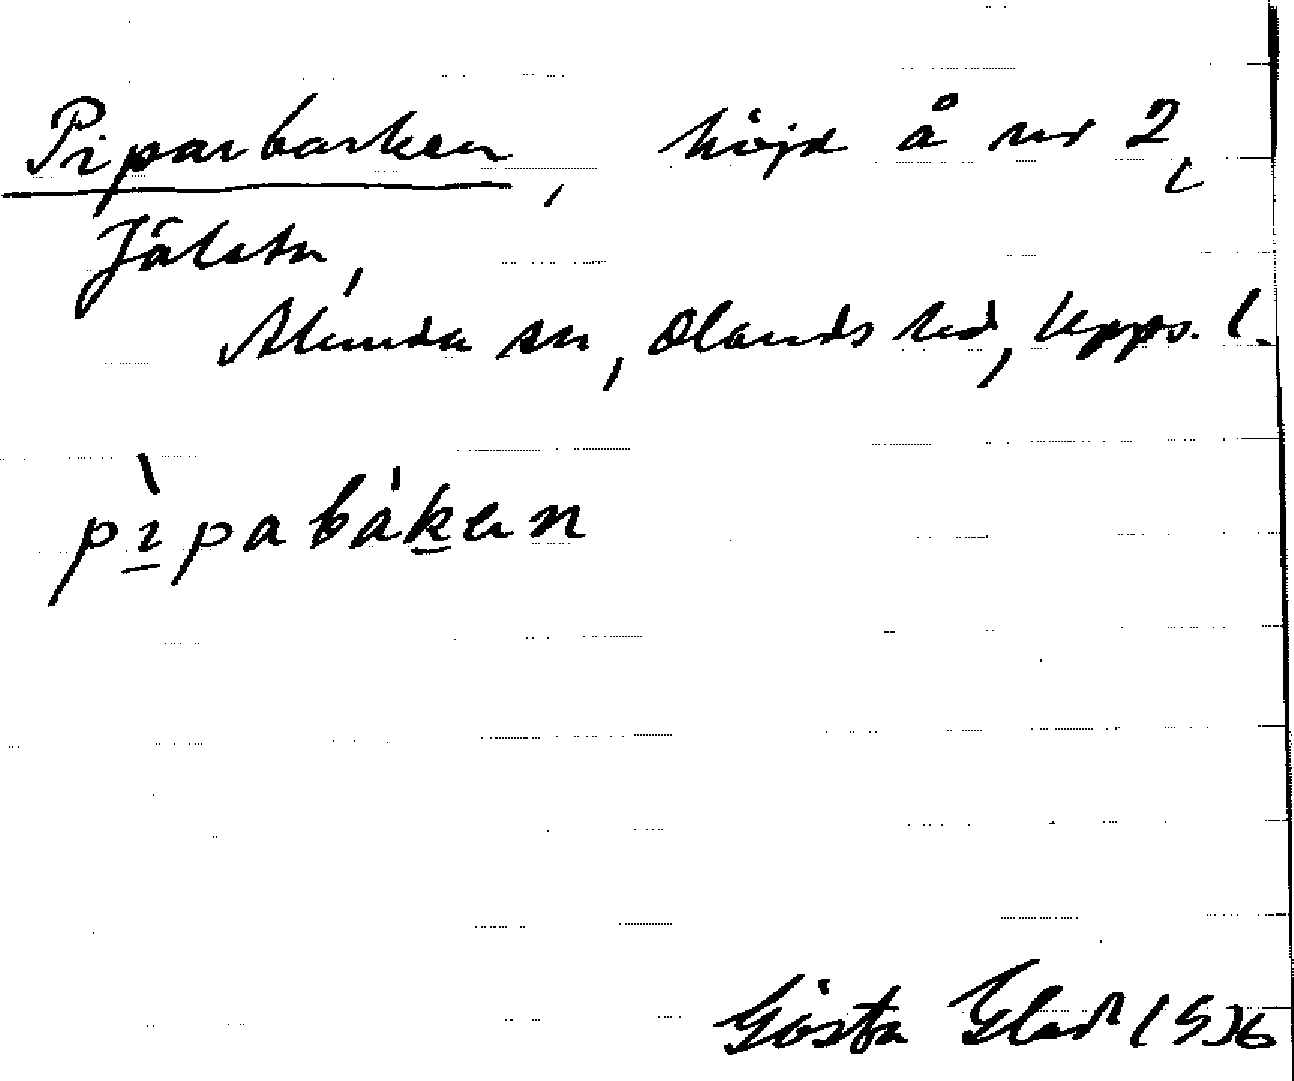 Piparbacken, höjd å nr 2,
Jälsta,
Alunda sn, Olands hd, Upps. l.
pìpabáken
Gösta Glad 1936